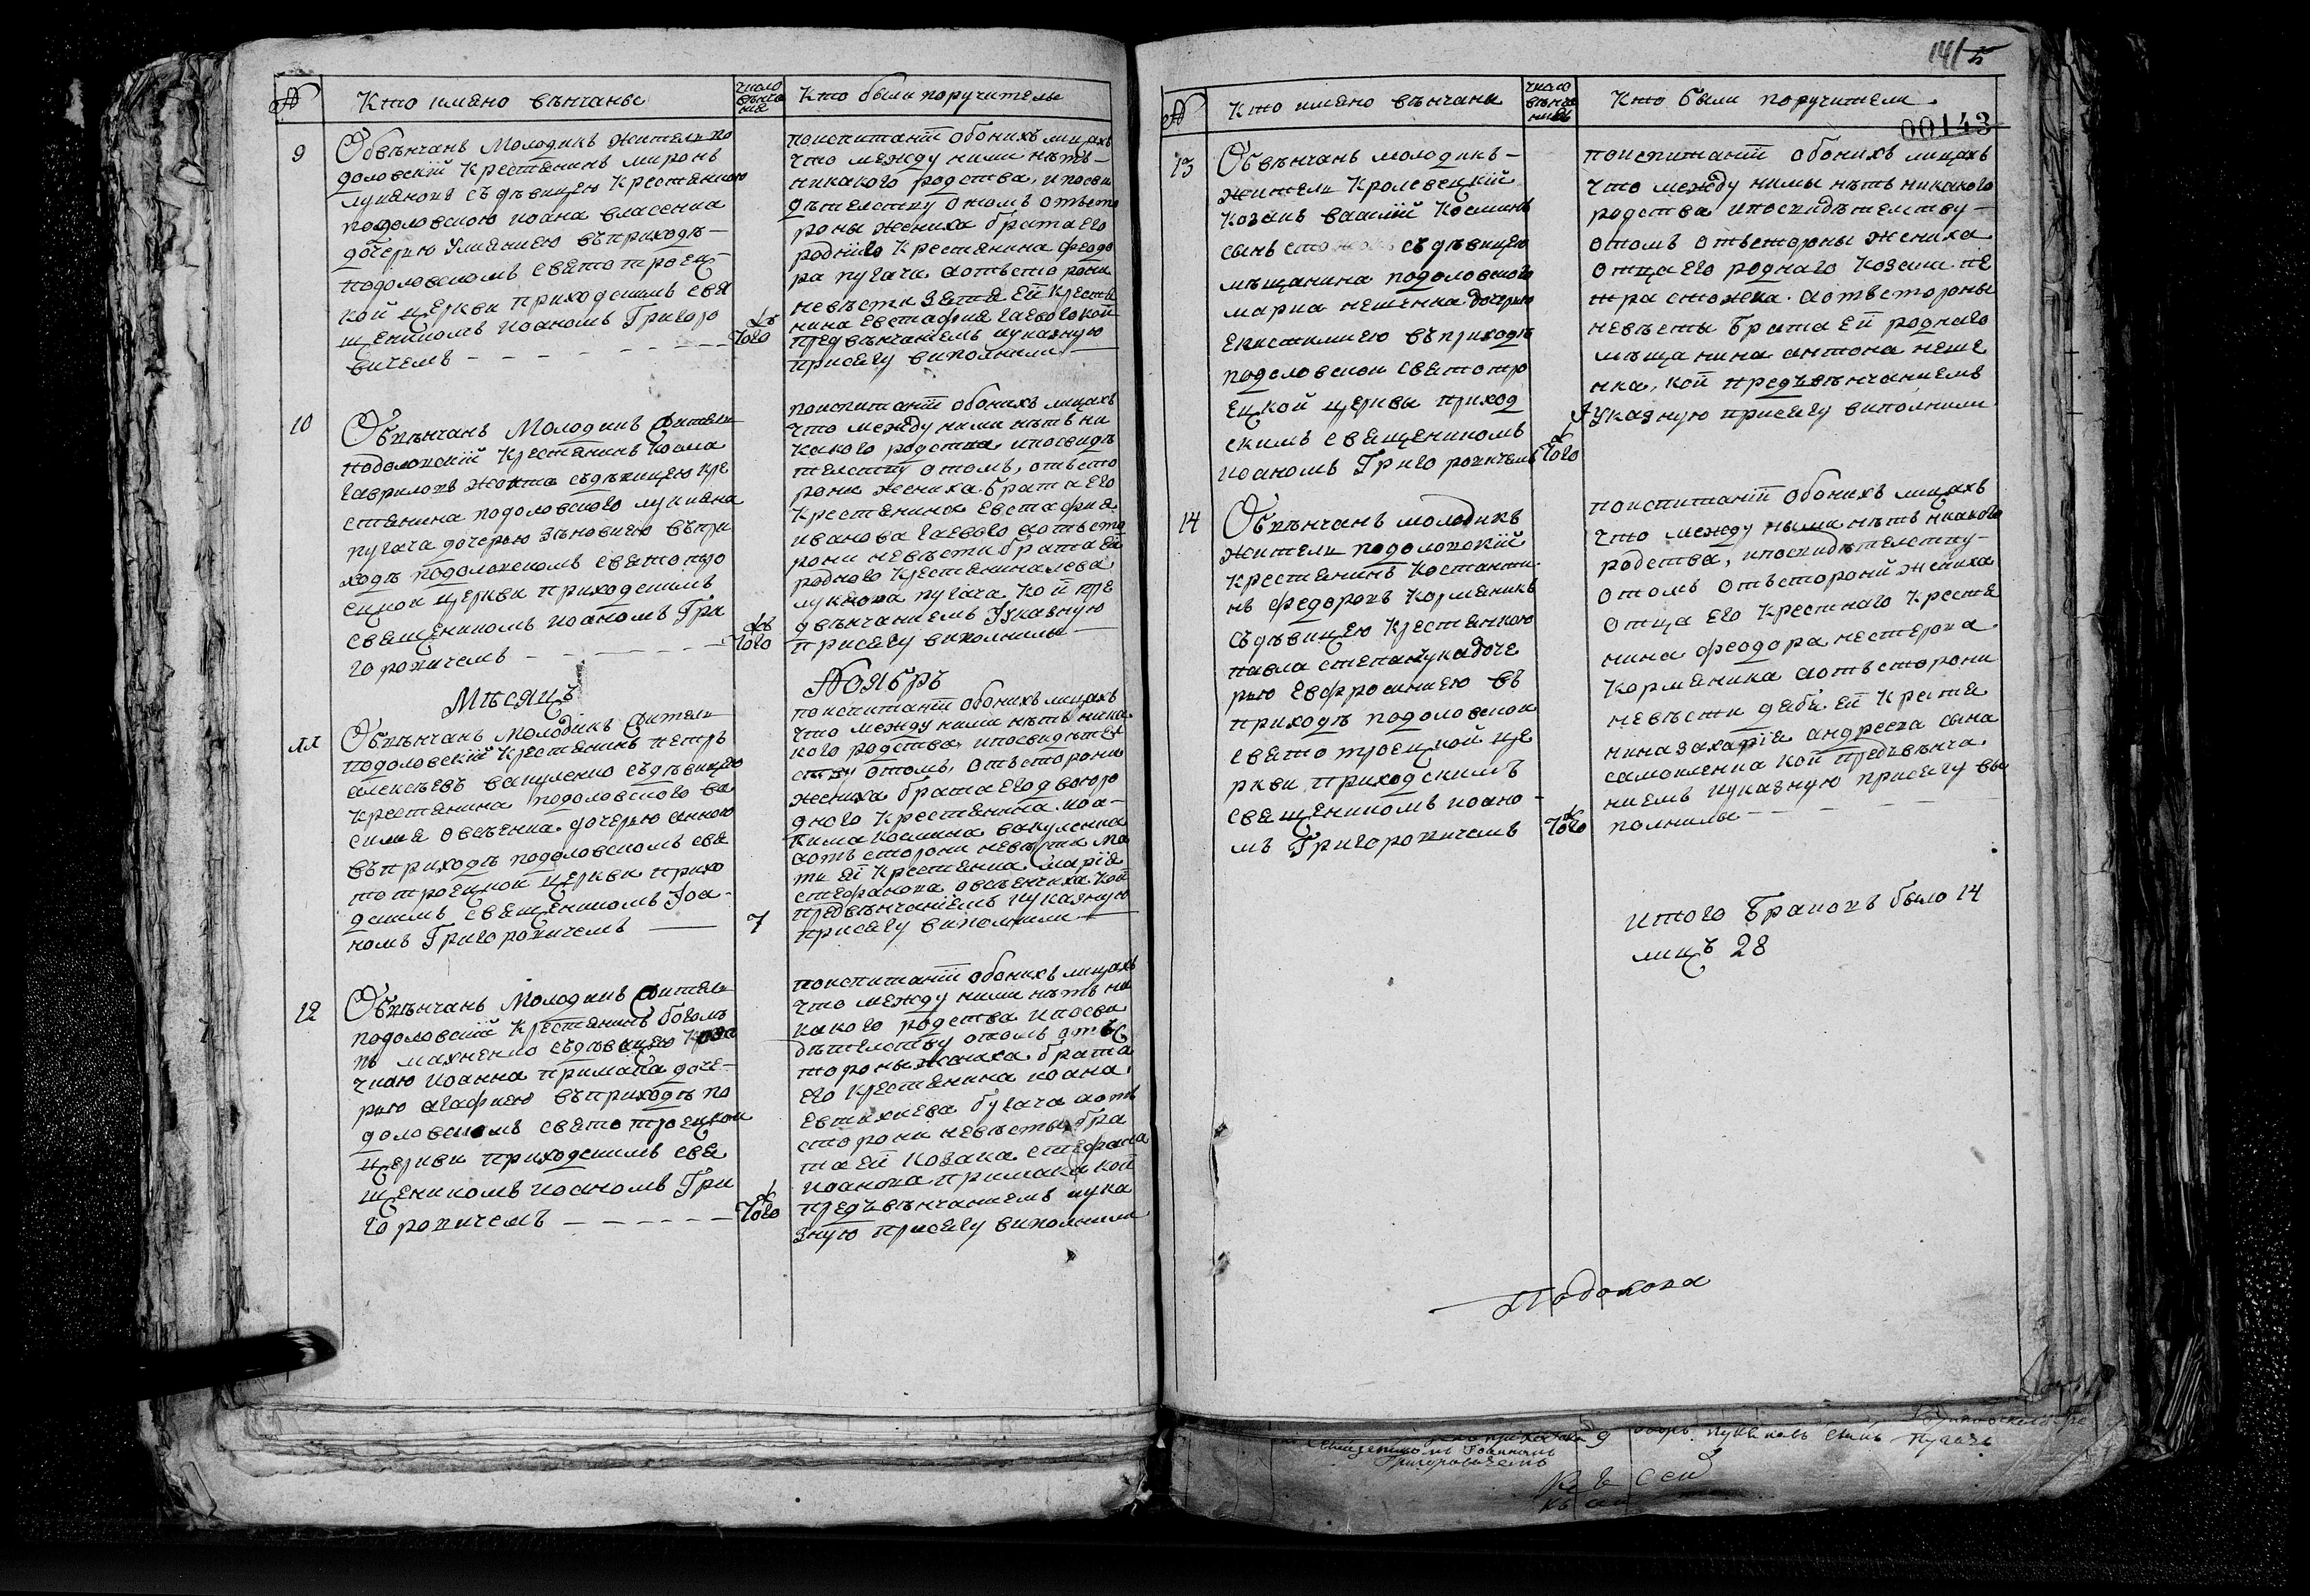 №
Кто имяно вѣнчаны
число
вѣнча
ния
Кто были поручители
9
Обвѣнчанъ Молодикъ жители по
доловскїй Крестянинъ миронъ
лукяновъ съдѣвицею Крестянкою
подоловскою иоана власенка
дочерью Улияниею въприходѣ –
подоловскомъ святотроец
кой церкви приходскимъ свя
щенникомъ иоаномъ Григоро
вичемъ
того
поиспитанїи обоихъ лицахъ
что между ними нѣтъ –
никакого родства, ипосви
дѣтелству отомъ отъсто
роны жениха брата его
родного Крестянина феодо
ра пугача аотъсторони
невѣсти зятя ей Крестя
нина Евстафия гаевого кой
предвѣнчаніемъ иуказную
присягу виполнили
10
Обвѣнчанъ Молодикъ жители
подоловскїй Крестянинъ козма
гавриловъ съдѣвицею кре
стянина подоловского лукияна
пугача дочерью Зѣновиею въпри
ходѣ подоловскомъ святотро
ецкой церкви приходскимъ
священикомъ иоаномъ Гри
горовичемъ
того
поиспитанїи обоихъ лицахъ
что между ними нѣтъ ни
какого родства ипосвидѣ
телству отомъ, отъсто
рони жениха брата его
Крестянина Евстафия
иванова гаевого аотъсто
рони невѣсти брата ей
родного Крестянина лева
лукянова пугача кой пре
двѣнчаніемъ Указную
присягу виполнили
Мѣсяцъ
Ноябръ
11
Обвѣнчанъ Молодикъ жители
подоловскїй Крестянинъ петръ
алексѣевъ вакуленко съдѣвицею
Крестянина подоловского ва
силия овсѣенка дочерью анною
въприходѣ подоловскомъ свя
тотроецкой церкви прихо
дскимъ священикомъ Іоа
номъ Григоровичемъ
7
поиспитанїи обоихъ лицахъ
что между ними нѣтъ ника
кого родства ипосвидѣтел
ству отомъ, отъсторони
жениха брата его двоюро
дного Крестянина иоа –
кима космина вакуленка
аотъсторони невѣсти ма
ти ей Крестянка марїя
стефанова овсѣенчиха кой
предвѣнчаніемъ иуказную
присягу виполнили
12
Обвѣнчанъ Молодикъ жители
подоловскїй Крестянинъ
махненко съдѣвицею коза
чкою иоанна примака доче-
рью агафиею въприходѣ по
доловскомъ святотроецкой
церкви приходскимъ свя
щеникомъ иоаномъ Гри
горовичемъ
того
поиспитанїи обоихъ лицахъ
что между ними нѣтъ ни
какого родства ипосви
дѣтелству отомъ отъс
тороны жениха брата
его Крестянина иоана
Евтихиева бугача аотъ
сторони невѣсты бра
та ей козака стефана
иоанова примака кой
предъвѣнчаниемъ иука
зную присягу виполнили
141
00143
№
Кто имяно вѣнчаны
число
вѣнча
ния
Кто были поручители
13
Обвѣнчанъ молодикъ –
жители Кролевецкїй
козакъ василїй Косминъ
сынъ съдѣвицею
мѣщанина подоловского
марка нешенка дочерью
Епистимиею въприходѣ
подоловскои святотро
ецкой церквы приход
скимъ священикомъ
иоаномъ Григоровичемъ
того
поиспитанїи обоихъ лицахъ
что между нимы нѣтъ никакого
родства ипосвидѣтелству –
отомъ отъстороны жениха
отца его родного козака пе
тра стожека аотъстороны
невѣсты брата ей родного
мѣщанина антона неше
нка, кой предъвѣнчаниемъ
Указную присягу виполнили
14
Обвѣнчанъ молодикъ
жители подоловскїй
Крестянинъ Костанти
нъ федоровъ Корманикъ
съдѣвицею Крестянкою
павла степанчука доче
рью Евфросиниею въ
приходѣ подоловскои
святотроецкой це
ркви приходскимъ
священикомъ иоано
мъ Григоровичемъ
того
поиспитанїи обоихъ лицахъ
что между ными нѣтъ никакого
родства, ипосвидѣтелству –
отомъ отъстороны жениха
отца его Крестного Крестя
нина феодора нестерова
Корманика аотъсторони
невѣсти дяди ей Крестя
нина захарїя андреева сына
самойленка кой предъвѣнча
ниемъ иуказную присягу вы
полнилы
итого браковъ было 14
лицъ 28
Подолова
Священикомъ Іоанномъ
Григоровичемъ